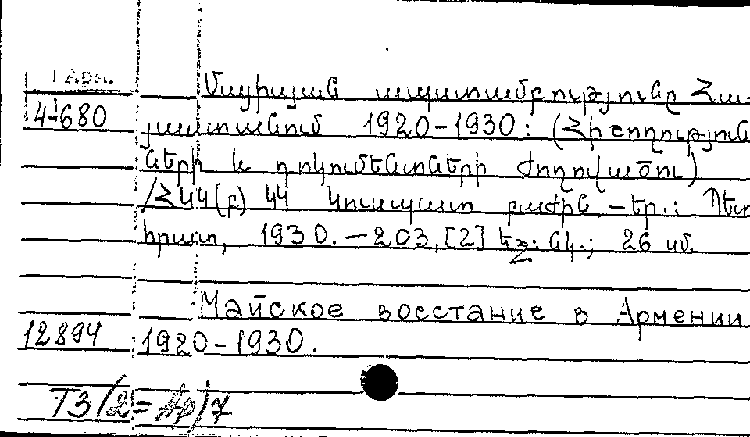 1 Арм.
Մայիսյան ապստամբությունը Հա-
4-680
յաստանում 1920-1930: (Հիշողություն
ների և դոկումենտների ժողովածու)
/ՀԿԿ(բ) ԿԿ Կուսպատ բաժին –Եր.: Պետ
հրատ, 1930.–203,[2] էջ: նկ.; 26 սմ
Майское восстание в Армении
12894
1920-1930.
Т3/2=Ар/7